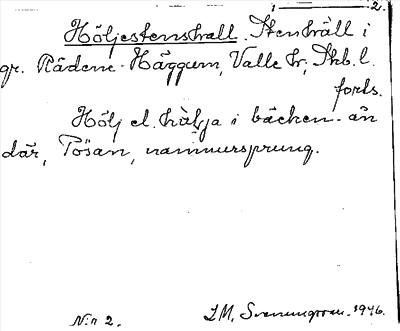 2.
Höljestenskvall. Stenkväll i
gr. Rådene-Häggum, Valle hr, Skb. l.
forts.
Hölj el. hålja i bäcken-ån
där, Pösan, namnursprung.
N:r 2.
1946.